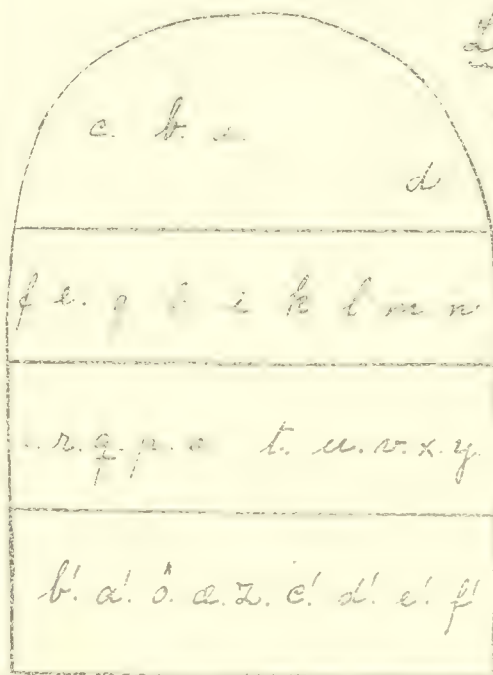 c. b.
d
f e. g i k l m n
r. q. p. o t. u. v. x. y.
b'. a'. ö. æ. z. c'. d'. e'. f'